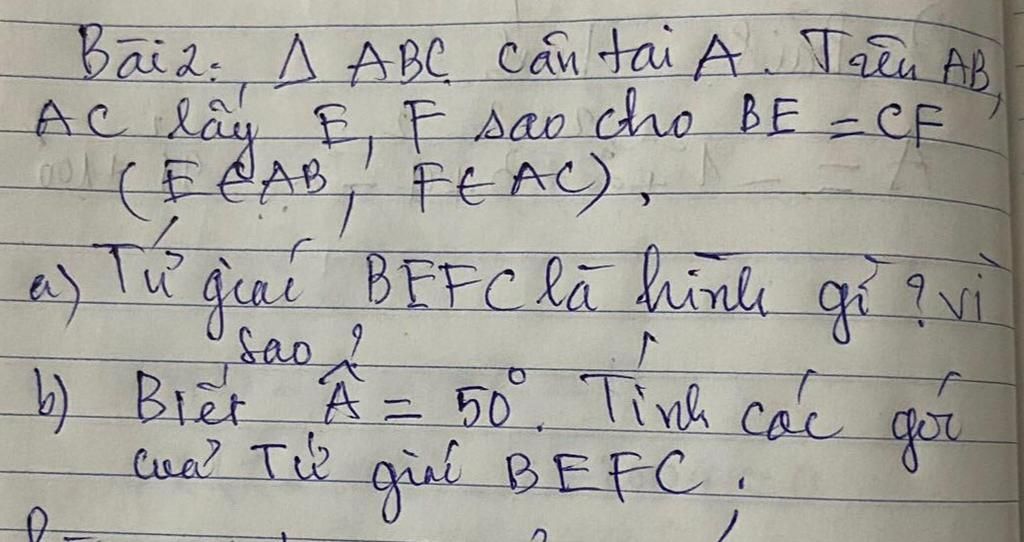 Bài 2: Δ ABC cân tại A. Trên AB,
AC lấy E, F sao cho BE = CF
(E ∈ AB, F ∈ AC).
a) Tứ giác BEFC là hình gì? vì
sao?
b) Biết Â = 50°. Tính các góc
của Tứ giác BEFC.